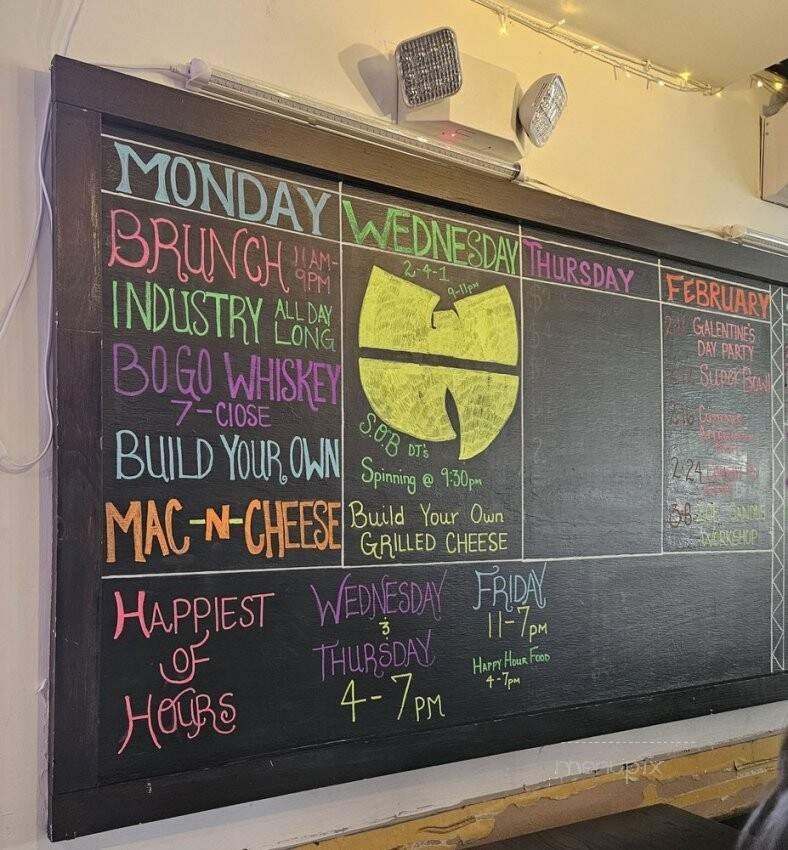 MONDAY
BRUNCH 11AM-
9PM
INDUSTRY ALL DAY
LONG
BOGO WHISKEY
7-CLOSE
BUILD YOUR OWN
MAC-N-CHEESE
WEDNESDAY
2-4-1
9-11pm
S.O.B DJ's
Spinning @ 9:30pm
Build Your Own
GRILLED CHEESE
THURSDAY
FEBRUARY
GALENTINE'S
DAY PARTY
SUPER BOWL
2-24
3-8
WORKSHOP
HAPPIEST
OF
HOURS
WEDNESDAY
&
THURSDAY
4-7PM
FRIDAY
11-7PM
HAPPY HOUR FOOD
4-7PM
menupix